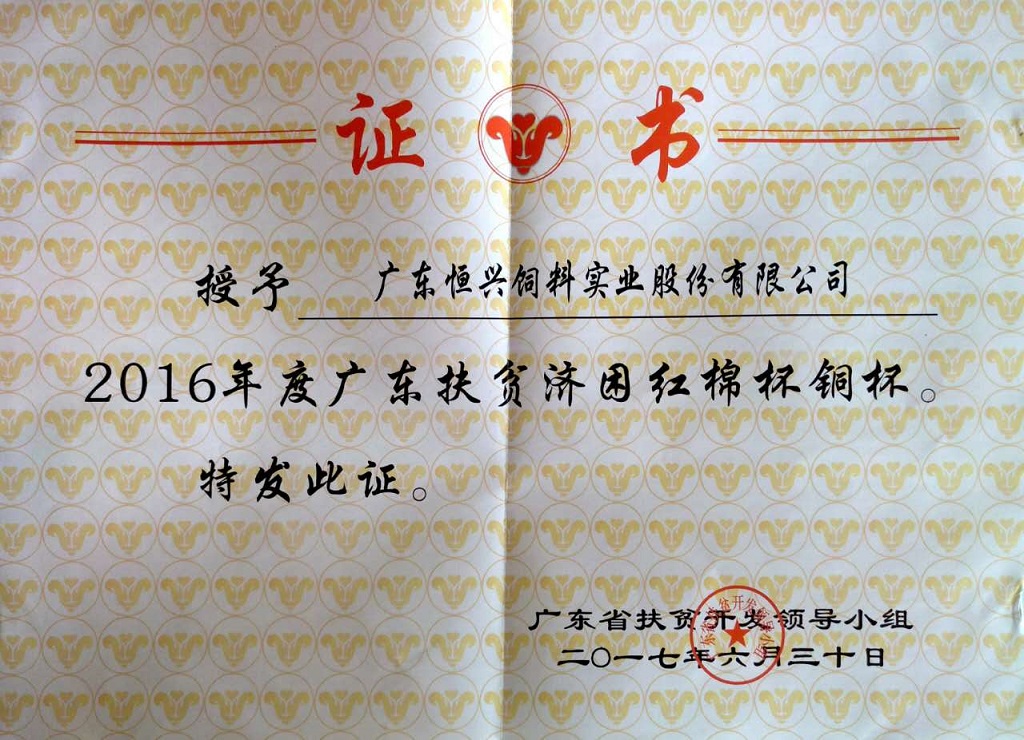 证书
授予 广东恒兴饲料实业股份有限公司
2016年度广东扶贫济困红棉杯铜杯。
特发此证。
广东省扶贫开发领导小组
二〇一七年六月三十日